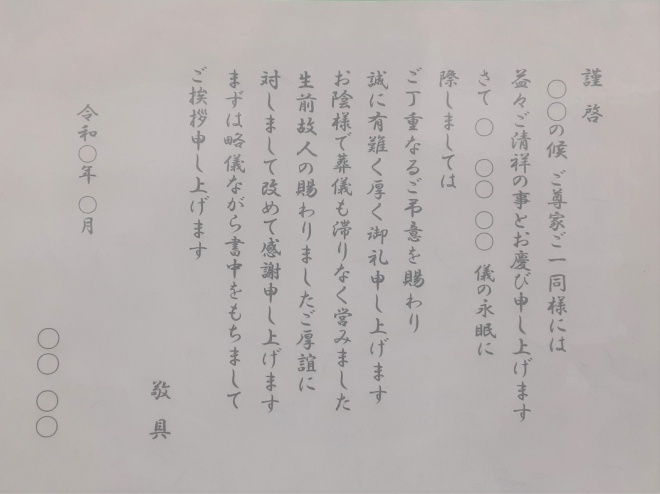 謹啓
〇〇の候 ご尊家ご一同様には
益々ご清祥の事とお慶び申し上げます
さて 〇 〇〇 〇〇 儀の永眠に
際しましては
ご丁重なるご弔意を賜わり
誠に有難く厚く御礼申し上げます
お陰様で葬儀も滞りなく営みました
生前故人の賜わりましたご厚誼に
対しまして改めて感謝申し上げます
まずは略儀ながら書中をもちまして
ご挨拶申し上げます
敬具
令和〇年 〇月
〇〇 〇〇